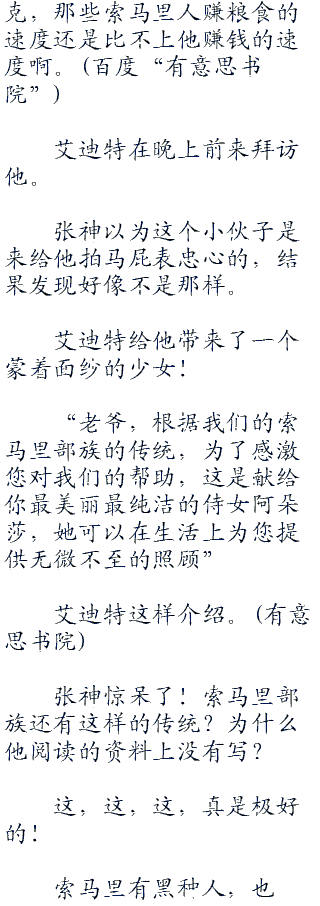 克，那些索马里人赚粮食的
速度还是比不上他赚钱的速
度啊。(百度“有意思书
院”)
艾迪特在晚上前来拜访
他。
张神以为这个小伙子是
来给他拍马屁表忠心的，结
果发现好像不是那样。
艾迪特给他带来了一个
蒙着面纱的少女！
“老爷，根据我们的索
马里部族的传统，为了感激
您对我们的帮助，这是献给
你最美丽最纯洁的侍女阿朵
莎，她可以在生活上为您提
供无微不至的照顾”
艾迪特这样介绍。(有意
思书院)
张神惊呆了！索马里部
族还有这样的传统？为什么
他阅读的资料上没有写？
这，这，这，真是极好
的！
索马里有黑种人，也